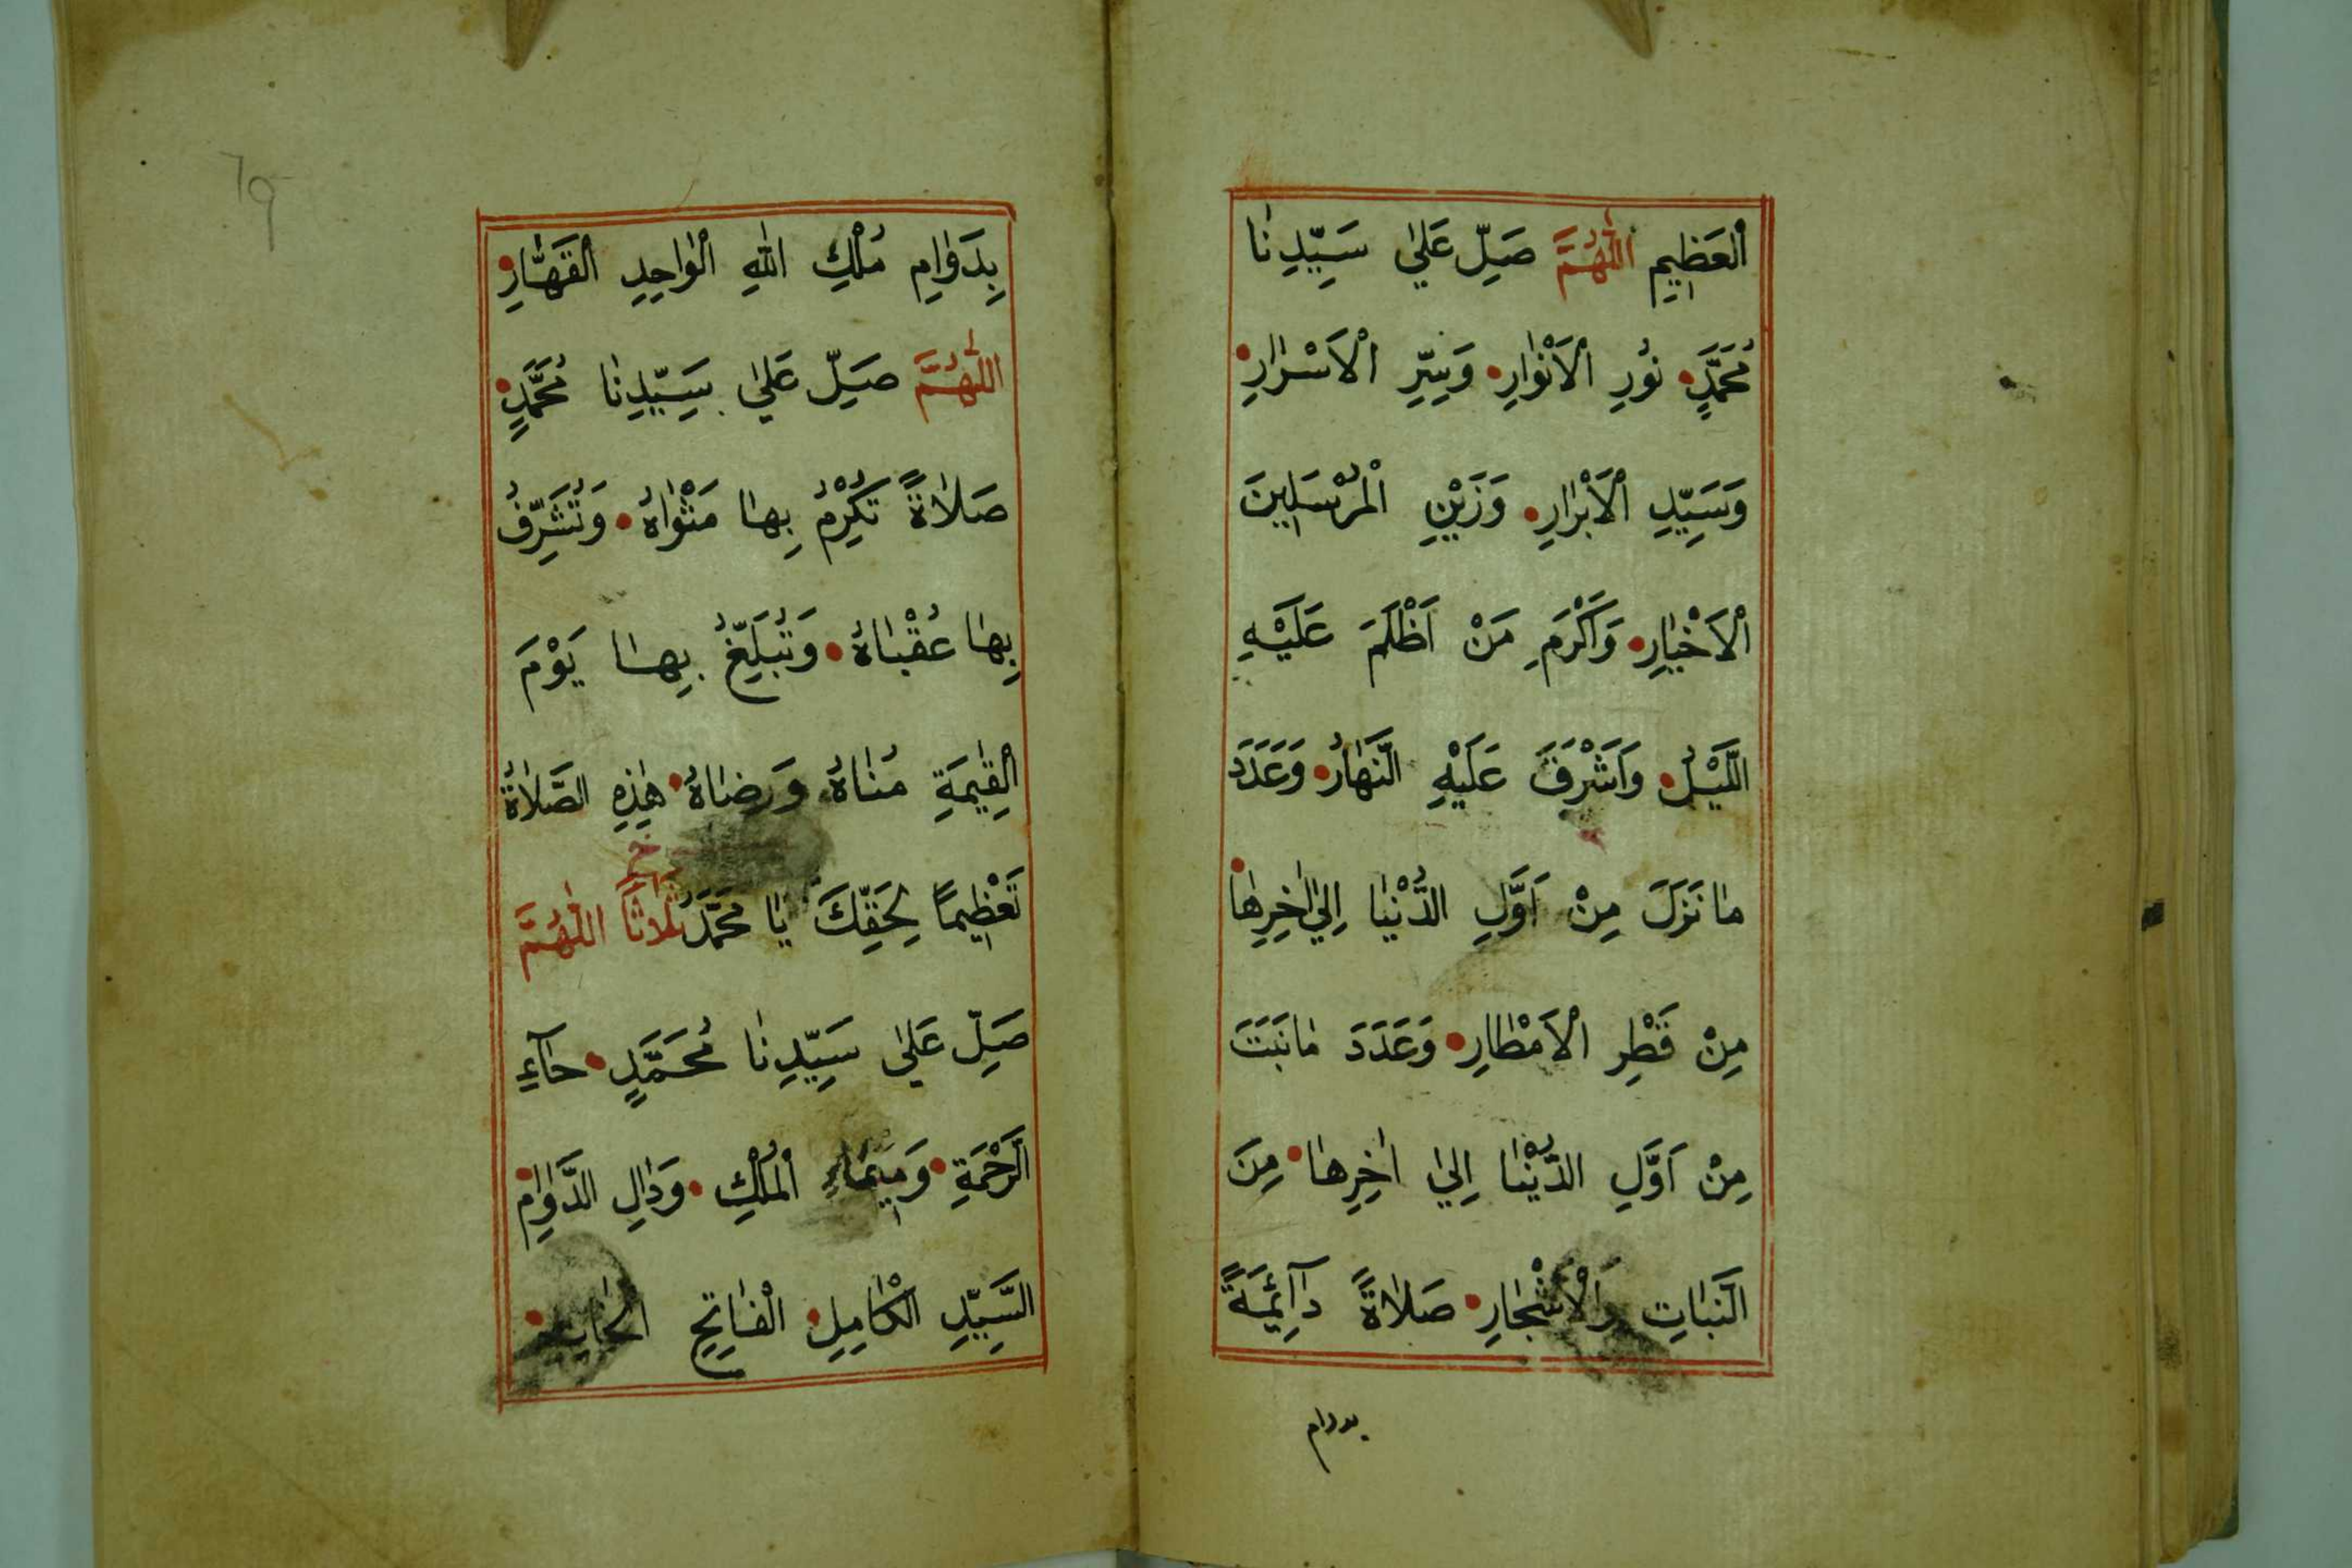 اَلْعَظِيمِ اَللّٰهُمَّ صَلِّ عَلٰي سَيِّدِنٰا
مُحَمَّدٍ نُورِ الْاَنْوٰارِ وَسِرِّ الْاَسْرٰارِ
وَسَيِّدِ الْاَبْرٰارِ وَزَيْنِ الْمُرْسَلِينَ
الْاَخْيٰارِ وَاَكْرَمِ مَنْ اَظْلَمَ عَلَيْهِ
اللَّيْلُ وَاَشْرَقَ عَلَيْهِ النَّهٰارُ وَعَدَدَ
مٰا نَزَلَ مِنْ اَوَّلِ الدُّنْيٰا اِلٰي اٰخِرِهٰا
مِنْ قَطْرِ الْاَمْطٰارِ وَعَدَدَ مٰا نَبَتَ
مِنْ اَوَّلِ الدُّنْيٰا اِلٰي اٰخِرِهٰا مِنَ
النَّبٰاتِ وَالْاَشْجٰارِ صَلٰاةً دَآئِمَةً
بدوام
69
بِدَوٰامِ مُلْكِ اللّٰهِ الْوٰاحِدِ الْقَهّٰارِ
اَللّٰهُمَّ صَلِّ عَلٰي سَيِّدِنٰا مُحَمَّدٍ
صَلٰاةً تُكْرِمُ بِهٰا مَثْوٰاهُ وَتُشَرِّفُ
بِهٰا عُقْبٰاهُ وَتُبَلِّغُ بِهٰا يَوْمَ
الْقِيٰمَةِ مُنٰاهُ وَرِضٰاهُ هٰذِهِ الصَّلٰاةُ
تَعْظِيمًا لِحَقِّكَ يٰا مُحَمَّدُ ثَلٰاثًا اَللّٰهُمَّ
صَلِّ عَلٰي سَيِّدِنٰا مُحَمَّدٍ حٰآءِ
الرَّحْمَةِ وَمِيمَاءِ الْمُلْكِ وَدٰالِ الدَّوٰامِ
السَّيِّدِ الْكٰامِلِ الْفٰاتِحِ